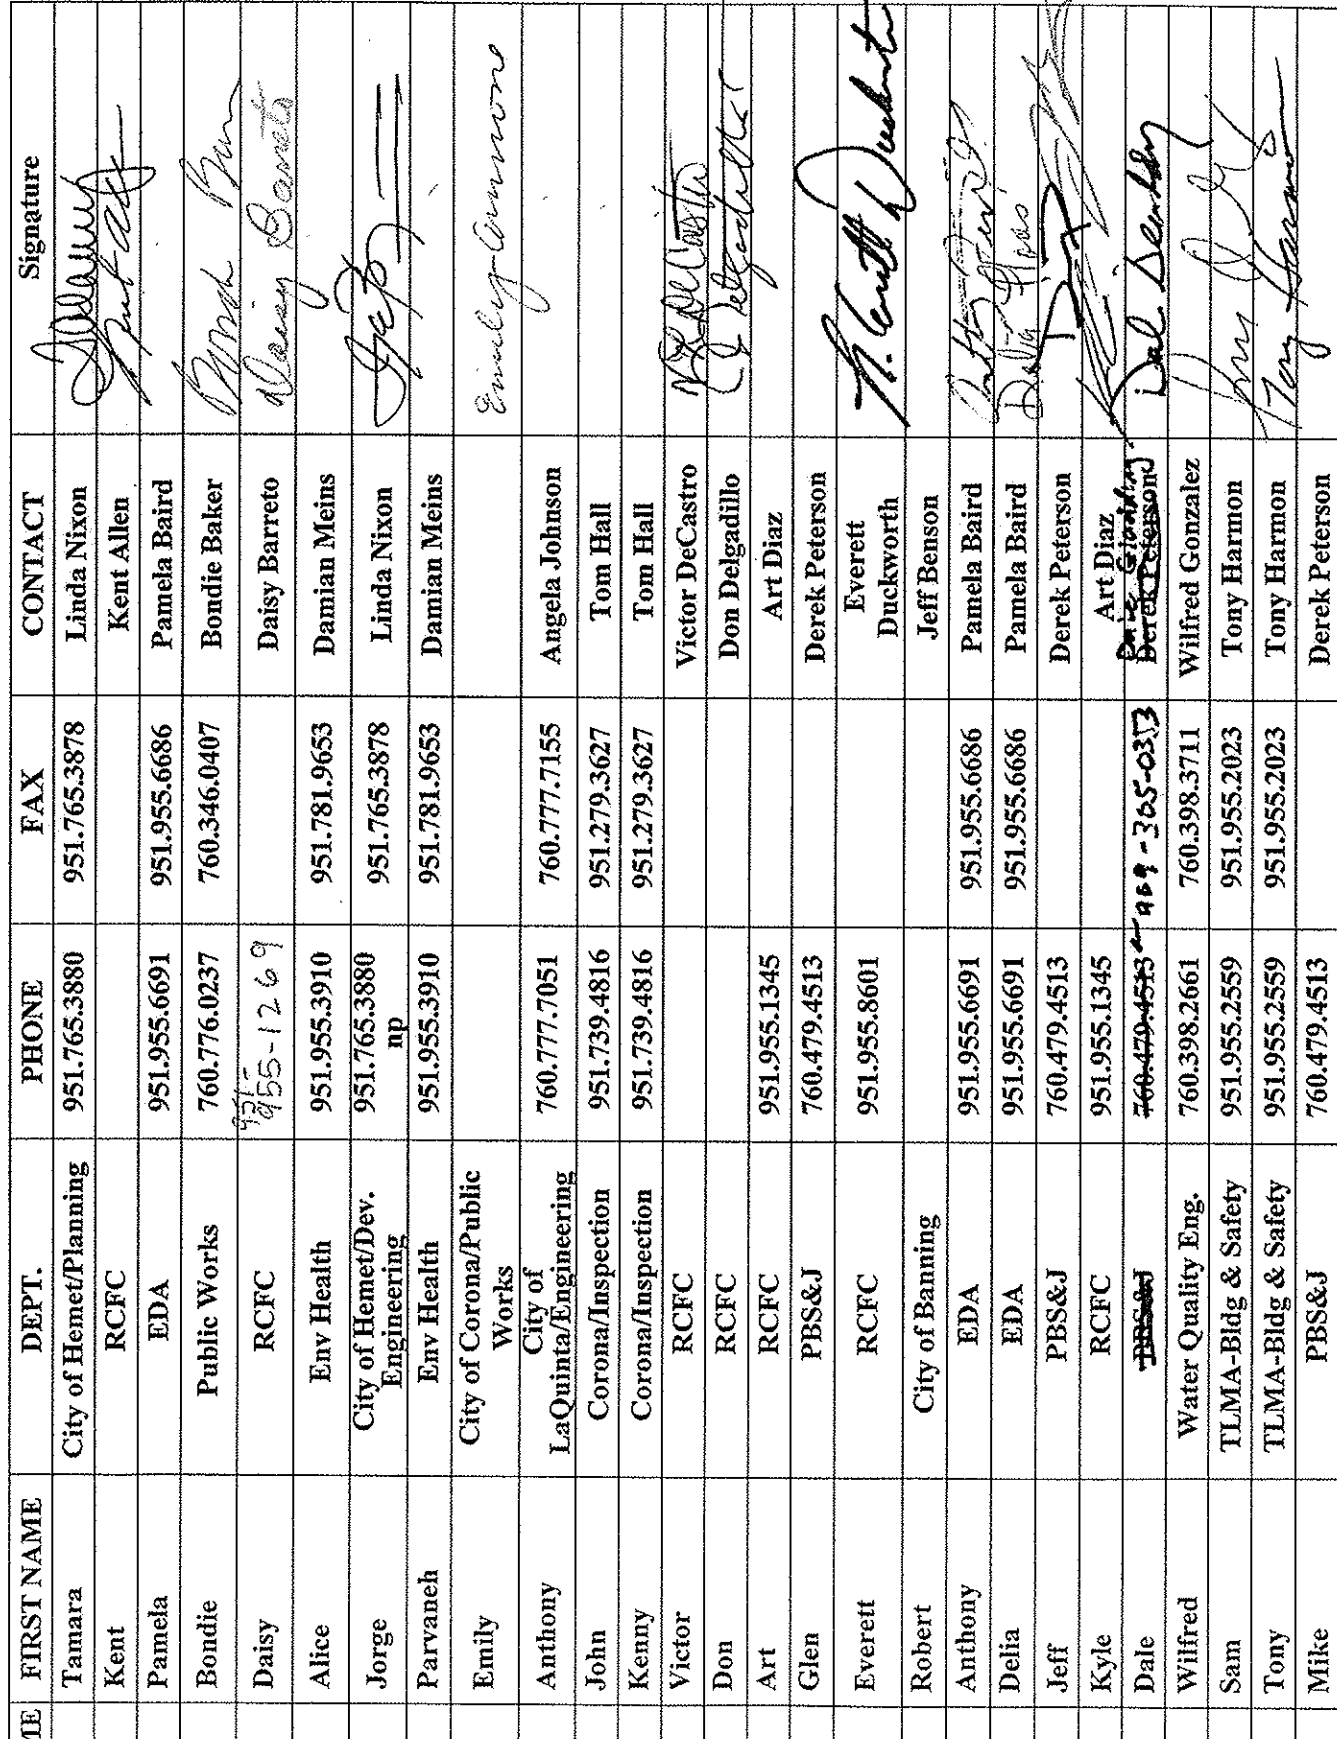 ME FIRST NAME DEPT. PHONE FAX CONTACT Signature
Tamara City of Hemet/Planning 951.765.3880 951.765.3878 Linda Nixon
Kent RCFC Kent Allen
Pamela EDA 951.955.6691 951.955.6686 Pamela Baird
Bondie Public Works 760.776.0237 760.346.0407 Bondie Baker
Daisy RCFC 951-955-1269 Daisy Barreto Daisy Barreto
Alice Env Health 951.955.3910 951.781.9653 Damian Meins
Jorge City of Hemet/Dev. Engineering 951.765.3880 np 951.765.3878 Linda Nixon
Parvaneh Env Health 951.955.3910 951.781.9653 Damian Meins
Emily City of Corona/Public Works Emily
Anthony City of LaQuinta/Engineering 760.777.7051 760.777.7155 Angela Johnson
John Corona/Inspection 951.739.4816 951.279.3627 Tom Hall
Kenny Corona/Inspection 951.739.4816 951.279.3627 Tom Hall
Victor RCFC Victor DeCastro DeCastro
Don RCFC Don Delgadillo Delgadillo
Art RCFC 951.955.1345 Art Diaz
Glen PBS&J 760.479.4513 Derek Peterson
Everett RCFC 951.955.8601 Everett Duckworth
Robert City of Banning Jeff Benson
Anthony EDA 951.955.6691 951.955.6686 Pamela Baird
Delia EDA 951.955.6691 951.955.6686 Pamela Baird
Jeff PBS&J 760.479.4513 Derek Peterson
Kyle RCFC 951.955.1345 Art Diaz
Dale PBS&J 760.479.4513 909-305-0353 Derek Peterson Dale
Wilfred Water Quality Eng. 760.398.2661 760.398.3711 Wilfred Gonzalez
Sam TLMA-Bldg & Safety 951.955.2559 951.955.2023 Tony Harmon
Tony TLMA-Bldg & Safety 951.955.2559 951.955.2023 Tony Harmon Tony Harmon
Mike PBS&J 760.479.4513 Derek Peterson